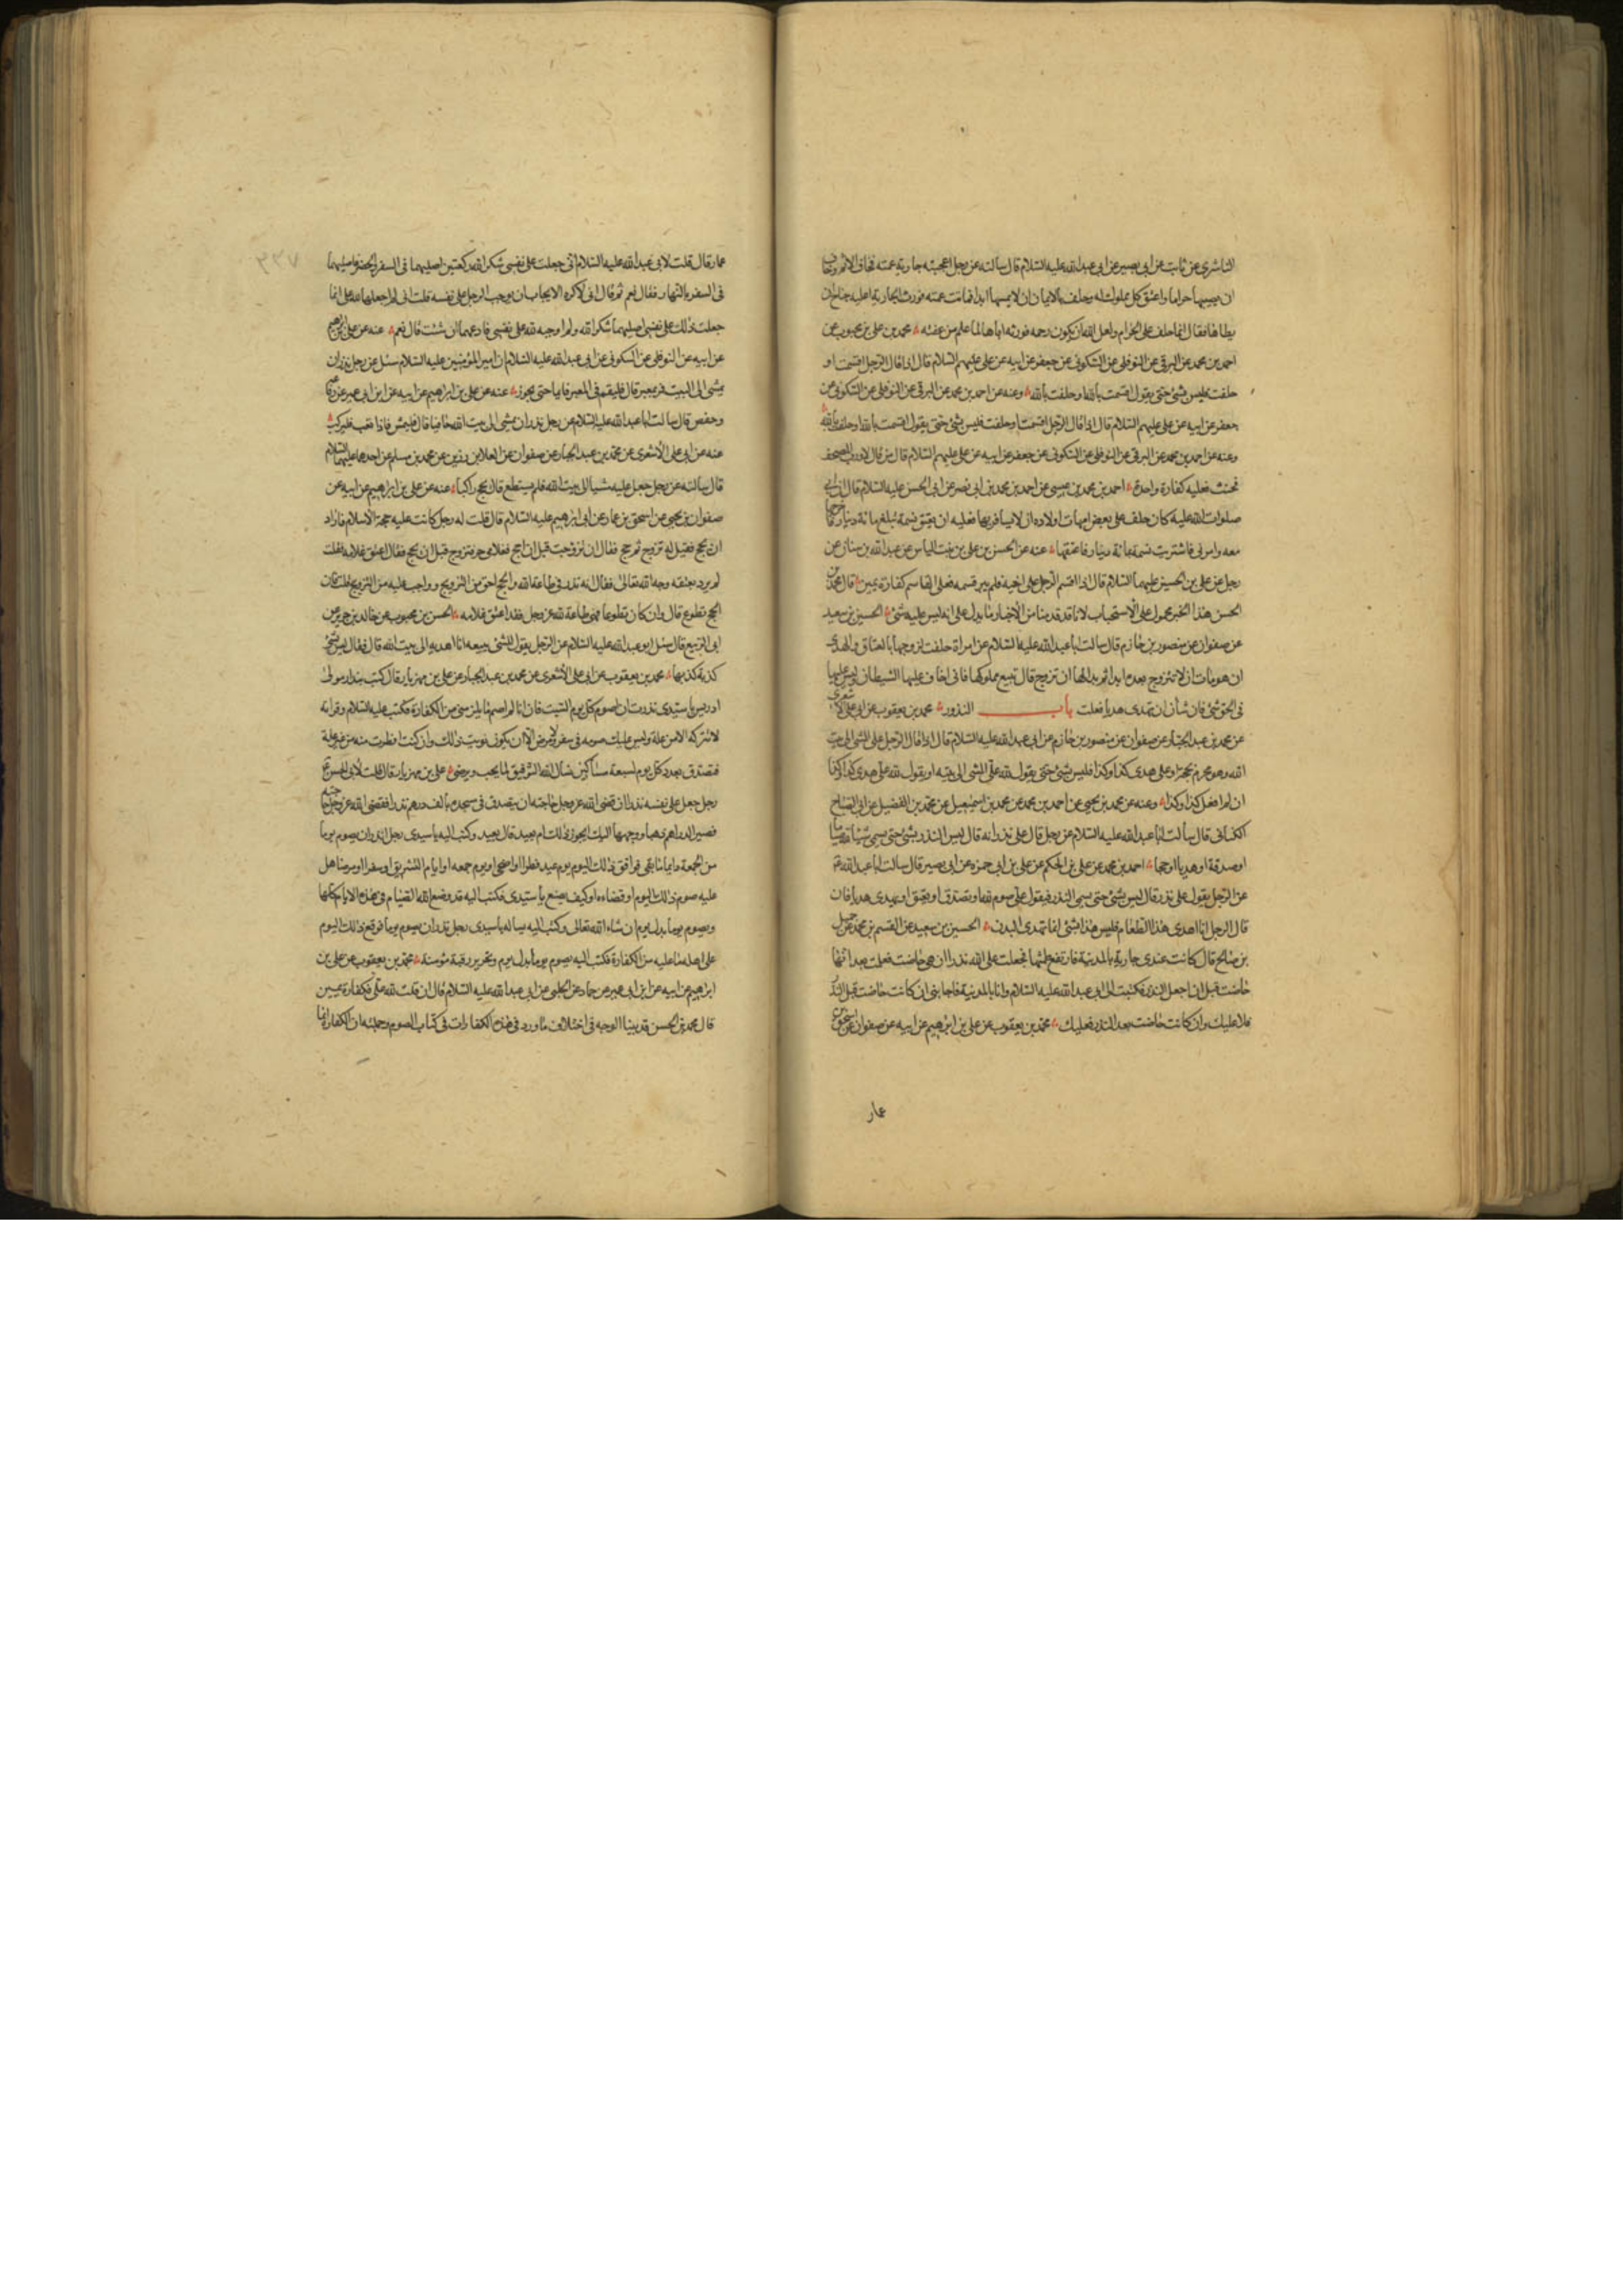 السائي عن ثابت عن ابى بصير عن ابى عبد الله عليه السلام قال سالته عن رجل اعجبته جارية عمته فخاف الاثم وخاف
ان يصيبها حراما واعتق كل مملوك له وحلف بالايمان ان لا يمسها ابدا فماتت عمته فورث الجارية اعليه جناح ان
يطاها فقال انما حلف على الحرام ولعل الله ان يكون رحمه فورثه اياها لما علم من عفته محمد بن على بن محبوب عن
احمد بن محمد عن البرقى عن النوفلى عن السكونى عن جعفر عن ابيه عن على عليهم السلام قال اذا قال الرجل اقسمت او
حلفت فليس بشئ حتى يقول اقسمت بالله او حلفت بالله وعنه عن احمد بن محمد عن البرقى عن النوفلى عن السكونى عن
جعفر عن ابيه عن على عليهم السلام قال اذا قال الرجل اقسمت او حلفت فليس بشئ حتى يقول اقسمت بالله او حلفت بالله
وعنه عن احمد بن محمد عن البرقى عن النوفلى عن السكونى عن جعفر عن ابيه عن على عليهم السلام قال من قال لا ورب المصحف
فحنث فعليه كفارة واحدة احمد بن محمد بن عيسى عن احمد بن محمد بن ابى نصر عن ابى الحسن عليه السلام قال ان ابى
صلوات الله عليه كان حلف على بعض امهات اولاده ان لا يسافر بها فان سافر بها فعليه ان يعتق نسمة تبلغ مائة دينار فاخرجها
معه وامرنى فاشتريت نسمة بمائة دينار فاعتقها عنه عن الحسن بن على بن بنت الياس عن عبد الله بن سنان عن
رجل عن على بن الحسين عليهما السلام قال اذا اقسم الرجل على اخيه فلم يبر قسمه فعلى القاسم كفارة يمين قال محمد بن
الحسن هذا الخبر محمول على الاستحباب لانا قد قدمنا من الاخبار ما يدل على انه ليس عليه شئ الحسين بن سعيد
عن صفوان عن منصور بن حازم قال سالت ابا عبد الله عليه السلام عن امراة حلفت لزوجها بالعتاق والهدى
ان هو مات ان لا تتزوج بعده ابدا ثم بدا لها ان تزوج قال تبيع مملوكها فانى اخاف عليها الشيطان وليس عليها
فى الحق شئ فان شات ان تهدى هديا فعلت باب النذور محمد بن يعقوب عن ابى على الاشعرى
عن محمد بن عبد الجبار عن صفوان عن منصور بن حازم عن ابى عبد الله عليه السلام قال اذا قال الرجل على المشى الى بيت
الله وهو محرم بحجة او على هدى كذا وكذا فليس بشئ حتى يقول لله على المشى الى بيته او يقول لله على هدى كذا وكذا
ان لم افعل كذا وكذا وعنه عن محمد بن يحيى عن احمد بن محمد عن محمد بن اسمعيل عن محمد بن الفضيل عن ابى الصباح
الكنانى قال سالت ابا عبد الله عليه السلام عن رجل قال على نذر انه قال ليس النذر بشئ حتى يسمى شيئا لله صياما
او صدقة او هديا او حجا احمد بن محمد عن على بن الحكم عن على بن ابى حمزه عن ابى بصير قال سالت ابا عبد الله ع
عن الرجل يقول على نذر قال ليس بشئ حتى يسمى النذر فيقول على صوم لله او يتصدق او يعتق او يهدى هديا فان
قال الرجل انا اهدى هذا الطعام فليس هذا بشئ انما تهدى البدن الحسين بن سعيد عن القسم بن محمد عن جميل
بن صالح قال كانت عندى جارية بالمدينة فارتفع طمثها فجعلت على الله نذرا ان هى حاضت فعلمت بعد انها
حاضت قبل ان اجعل النذر فكتبت الى ابى عبد الله عليه السلام وانا بالمدينة فاجابنى ان كانت حاضت قبل النذر
فلا عليك وان كانت حاضت بعد النذر فعليك محمد بن يعقوب عن على بن ابرهيم عن ابيه عن صفوان عن اسحق بن
عمار
۳۳۷
عمار قال قلت لابى عبد الله عليه السلام انى جعلت على نفسى شكرا لله ركعتين اصليهما فى السفر والحضر فاصليهما
فى السفر بالنهار فقال نعم ثم قال انى لاكره الايجاب ان يوجب الرجل على نفسه قلت انى لم اجعلهما لله على انما
جعلت ذلك على نفسى اصليهما شكرا لله ولم اوجبه لله على نفسى فادعهما ان شئت قال نعم عنه عن على بن ابرهيم
عن ابيه عن النوفلى عن السكونى عن ابى عبد الله عليه السلام ان امير المؤمنين عليه السلام سئل عن رجل نذر ان
يمشى الى البيت فمر بمعبر قال فليقم فى المعبر قايما حتى يجوز عنه عن على بن ابراهيم عن ابيه عن ابن ابى عمير عن رفاعه
وحفص قال سالت ابا عبد الله عليه السلام عن رجل نذر ان يمشى الى بيت الله حافيا قال فليمش فاذا تعب فليركب
عنه عن ابى على الاشعرى عن محمد بن عبد الجبار عن صفوان عن العلا بن رزين عن محمد بن مسلم عن احدهما عليهما السلام
قال سالته عن رجل جعل عليه مشيا الى بيت الله فلم يستطع قال يحج راكبا عنه عن على بن ابراهيم عن ابيه عن
صفوان بن يحيى عن اسحق بن عمار عن ابى ابرهيم عليه السلام قال قلت له رجل كانت عليه حجة الاسلام فاراد
ان يحج فقيل له تزوج ثم حج فقال ان تزوجت قبل ان احج فغلامى حر فتزوج قبل ان يحج فقال اعتق غلامه فقلت
لم يرد بعتقه وجه الله تعالى فقال انه نذر فى طاعة الله والحج احق من التزويج وواجب عليه من التزويج قلت فان
الحج تطوع قال وان كان تطوعا فهى طاعة لله عز وجل فقد اعتق غلامه الحسن بن محبوب عن خالد بن جرير عن
ابى الربيع قال سئل ابو عبد الله عليه السلام عن الرجل يقول للشئ يبيعه انا اهديه الى بيت الله قال فقال ليس بشئ
كذبة كذبها محمد بن يعقوب عن ابى على الاشعرى عن محمد بن عبد الجبار عن على بن مهزيار قال كتب بندار مولى
ادريس يا سيدى نذرت ان اصوم كل يوم السبت فان انا لم اصم ما يلزمنى من الكفارة فكتب عليه السلام وقراته
لا تتركه الا من علة وليس عليك صومه فى سفر ولا مرض الا ان تكون نويت ذلك وان كنت افطرت منه من غير علة
فتصدق بعدد كل يوم لسبعة مساكين نسال الله التوفيق لما يحب ويرضى على بن مهزيار قال قلت لابى الحسن ع
رجل جعل على نفسه نذرا ان قضى الله عز وجل حاجته ان يتصدق فى مسجده بالف درهم نذرا فقضى الله عز وجل حاجته
فصير الدراهم ذهبا ووجهها اليك ايجوز ذلك ام يعيد قال يعيد وكتب اليه يا سيدى رجل نذر ان يصوم يوما
من الجمعة دايما ما بقى فوافق ذلك اليوم يوم عيد فطر او اضحى او يوم جمعه او ايام التشريق او سفر او مرضا هل
عليه صوم ذلك اليوم او قضاءه او كيف يصنع يا سيدى فكتب اليه قد وضع الله الصيام فى هذه الايام كلها
ويصوم يوما بدل يوم ان شاء الله تعالى وكتب اليه يساله يا سيدى رجل نذر ان يصوم يوما فوقع ذلك اليوم
على اهله ما عليه من الكفارة فكتب اليه يصوم يوما بدل يوم وتحرير رقبة مؤمنة محمد بن يعقوب عن على بن
ابرهيم عن ابيه عن ابن ابى عمير عن حماد عن الحلبى عن ابى عبد الله عليه السلام قال ان قلت لله على فكفارة يمين
قال محمد بن الحسن قد بينا الوجه فى اختلاف ما ورد فى هذه الكفارات فى كتاب الصوم وجملته ان الكفارة انما